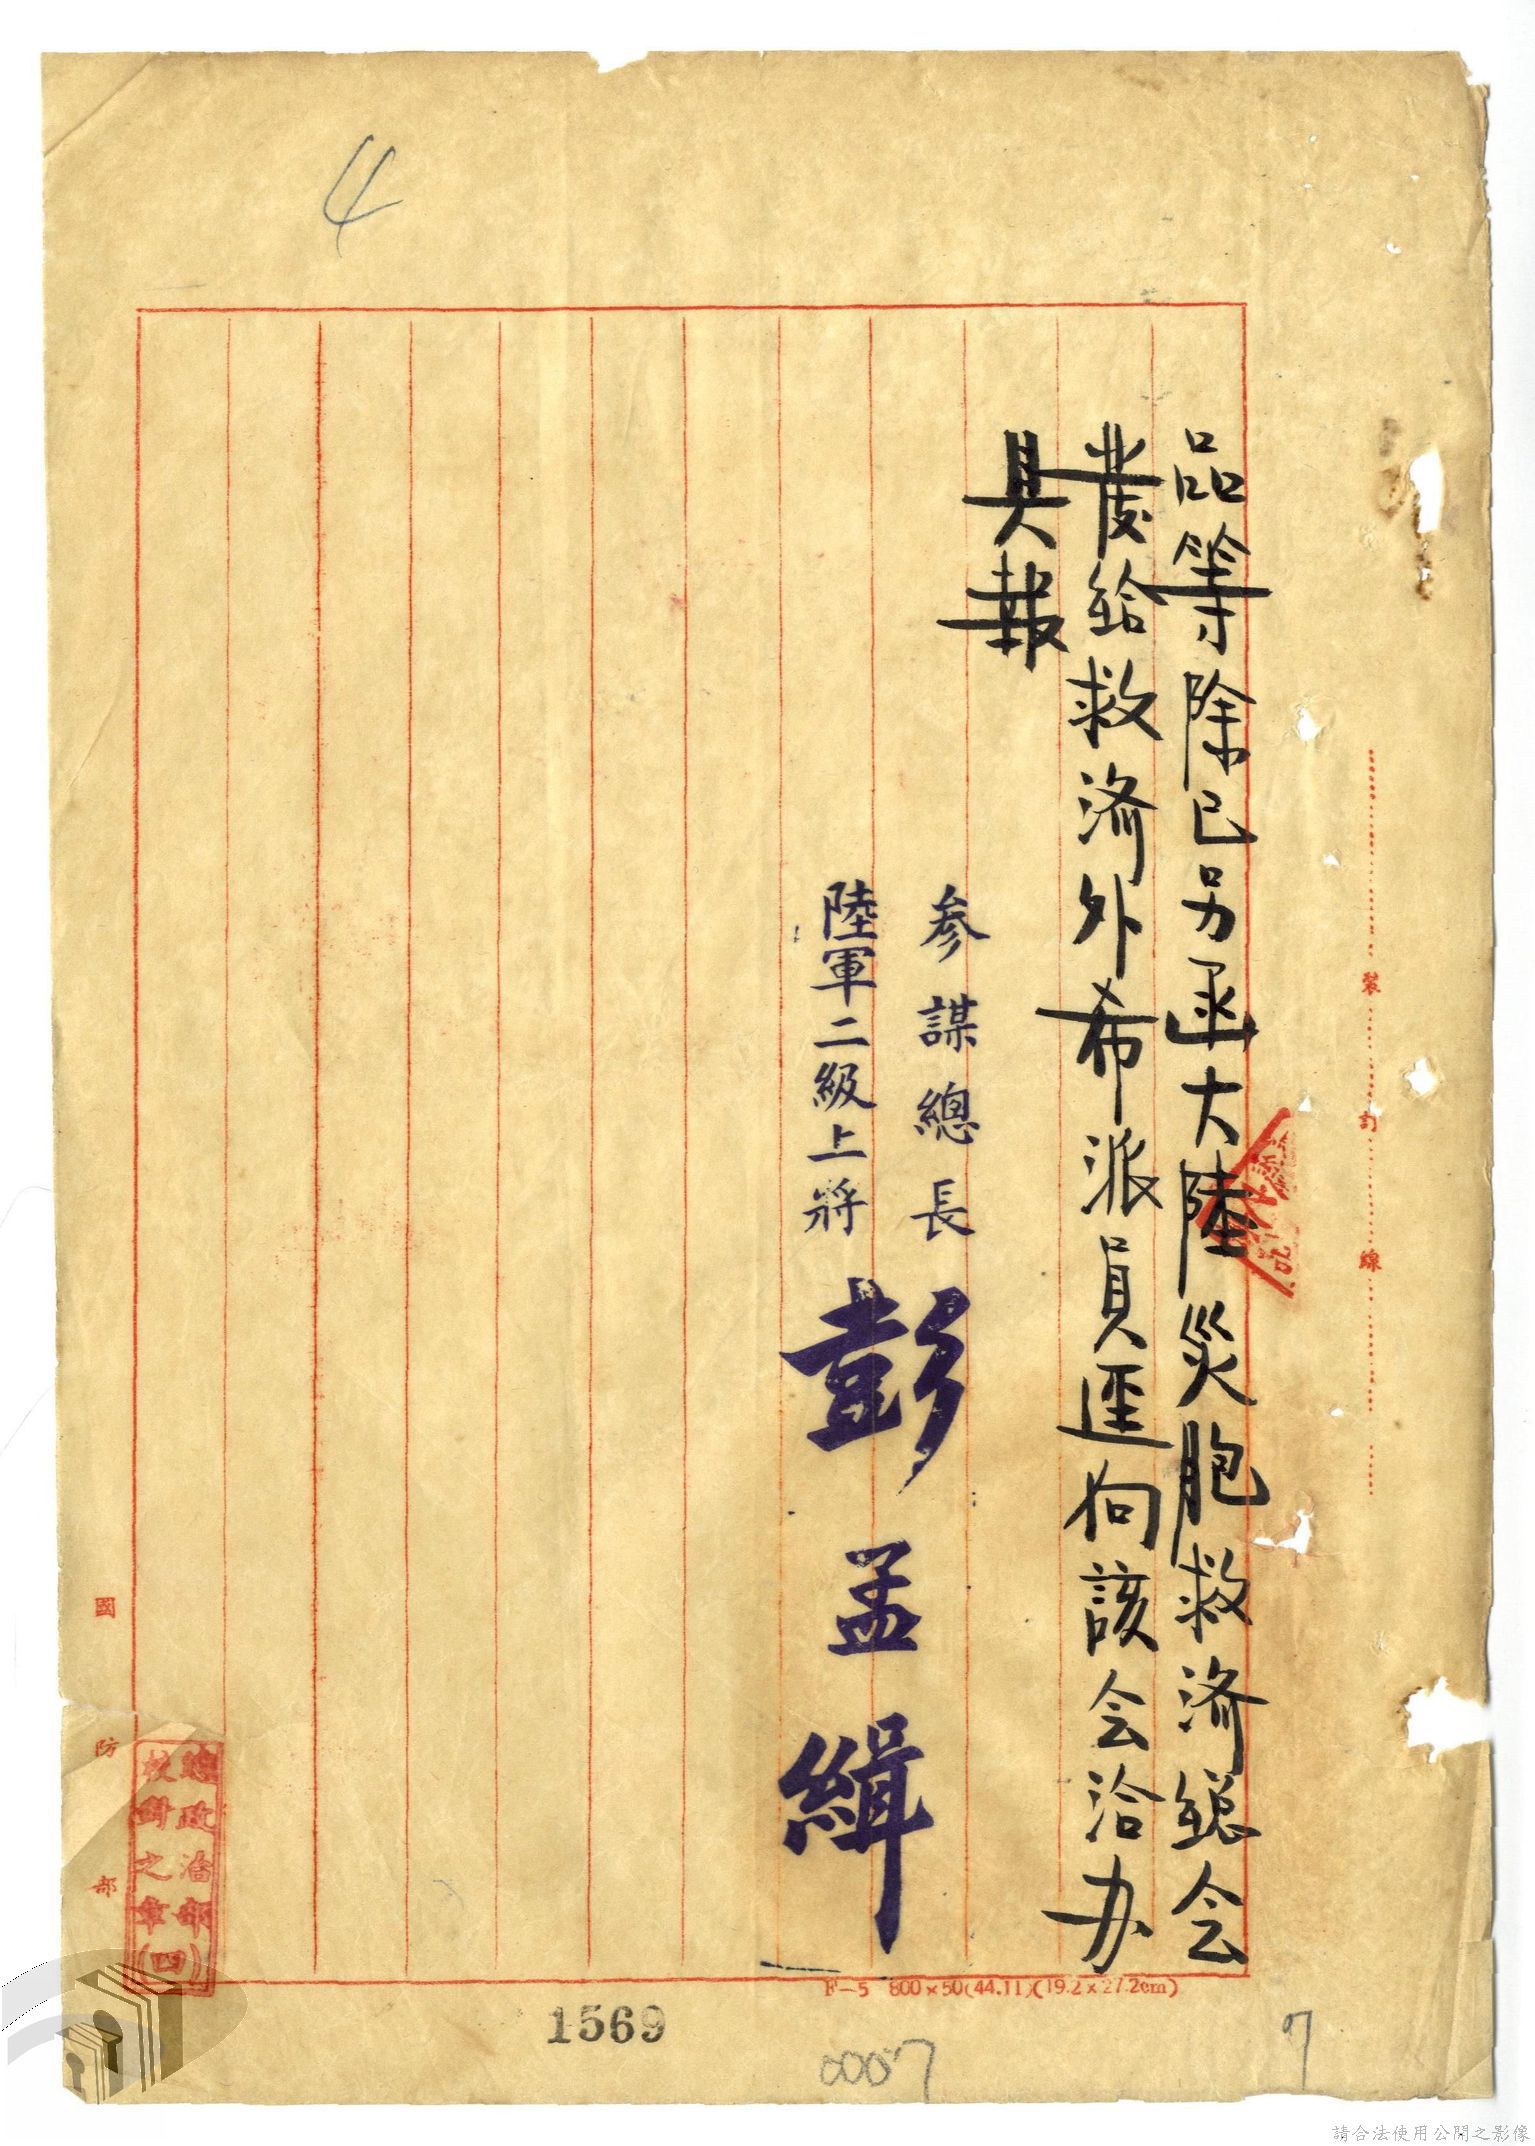 品等除已另函大陸災胞救済總会
發給救済外希派員逕向該会洽办
具報
參謀總長
陸軍二級上將
彭孟緝
裝訂線
國防部
總政治部
校對之章(四)
F—5 800×50(44.11)(19.2×27.2cm)
1569
0007
7
4
請合法使用公開之影像